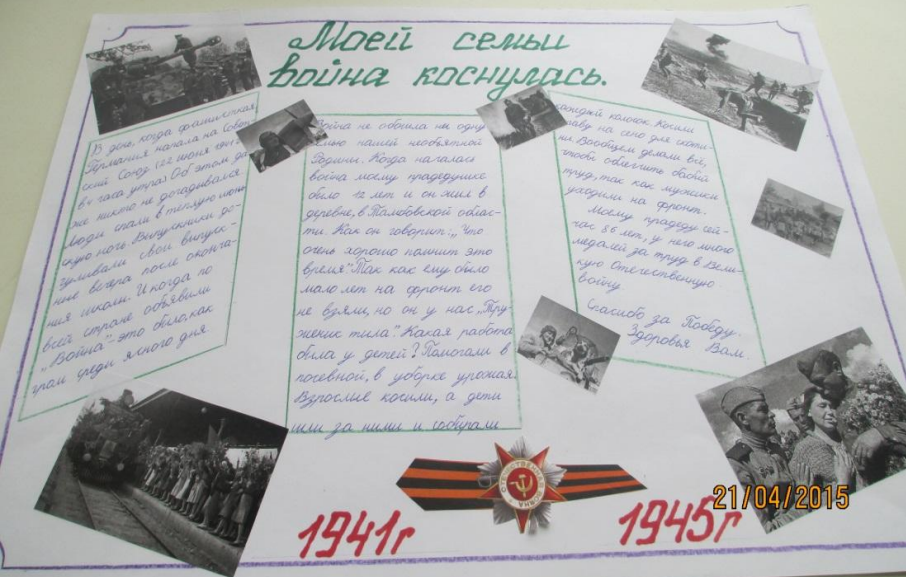 Моей семьи
война коснулась.
В день, когда фашисткая
Германия напала на Совет-
ский Союз (22 июня 1941г.
в 4 часа утра) Об этом да
же никто не догадывался
Люди спали в теплую июнь
скую ночь. Выпускники до-
гуливали свои выпуск-
ные вечера после оконча-
ния школы. И когда по
всей стране объявили
"Война" это было, как
гром среди ясного дня.
Война не обошла ни одну
семью нашей необъятной
Родины. Когда началась
война моему прадедушке
было 12 лет и он жил в
деревне, в Тамбовской облас-
ти. Как он говорит: "Что
очень хорошо помнит это
время". Так как ему было
мало лет на фронт его
не взяли, но он у нас "Тру-
женик тыла". Какая работа
была у детей? Помогали в
посевной, в уборке урожая.
Взрослые косили, а дети
шли за ними и собирали
каждый колосок. Косили
траву на сено для скоти-
ны. Вообщем делали всё,
чтобы облегчить бабий
труд, так как мужики
уходили на фронт.
Моему прадеду сей-
час 86 лет, у него много
медалей за труд в Вели-
кую Отечественную
войну
Спасибо за Победу.
Здоровья Вам.
ОТЕЧЕСТВЕННАЯ ВОЙНА
1941г
1945г
21/04/2015